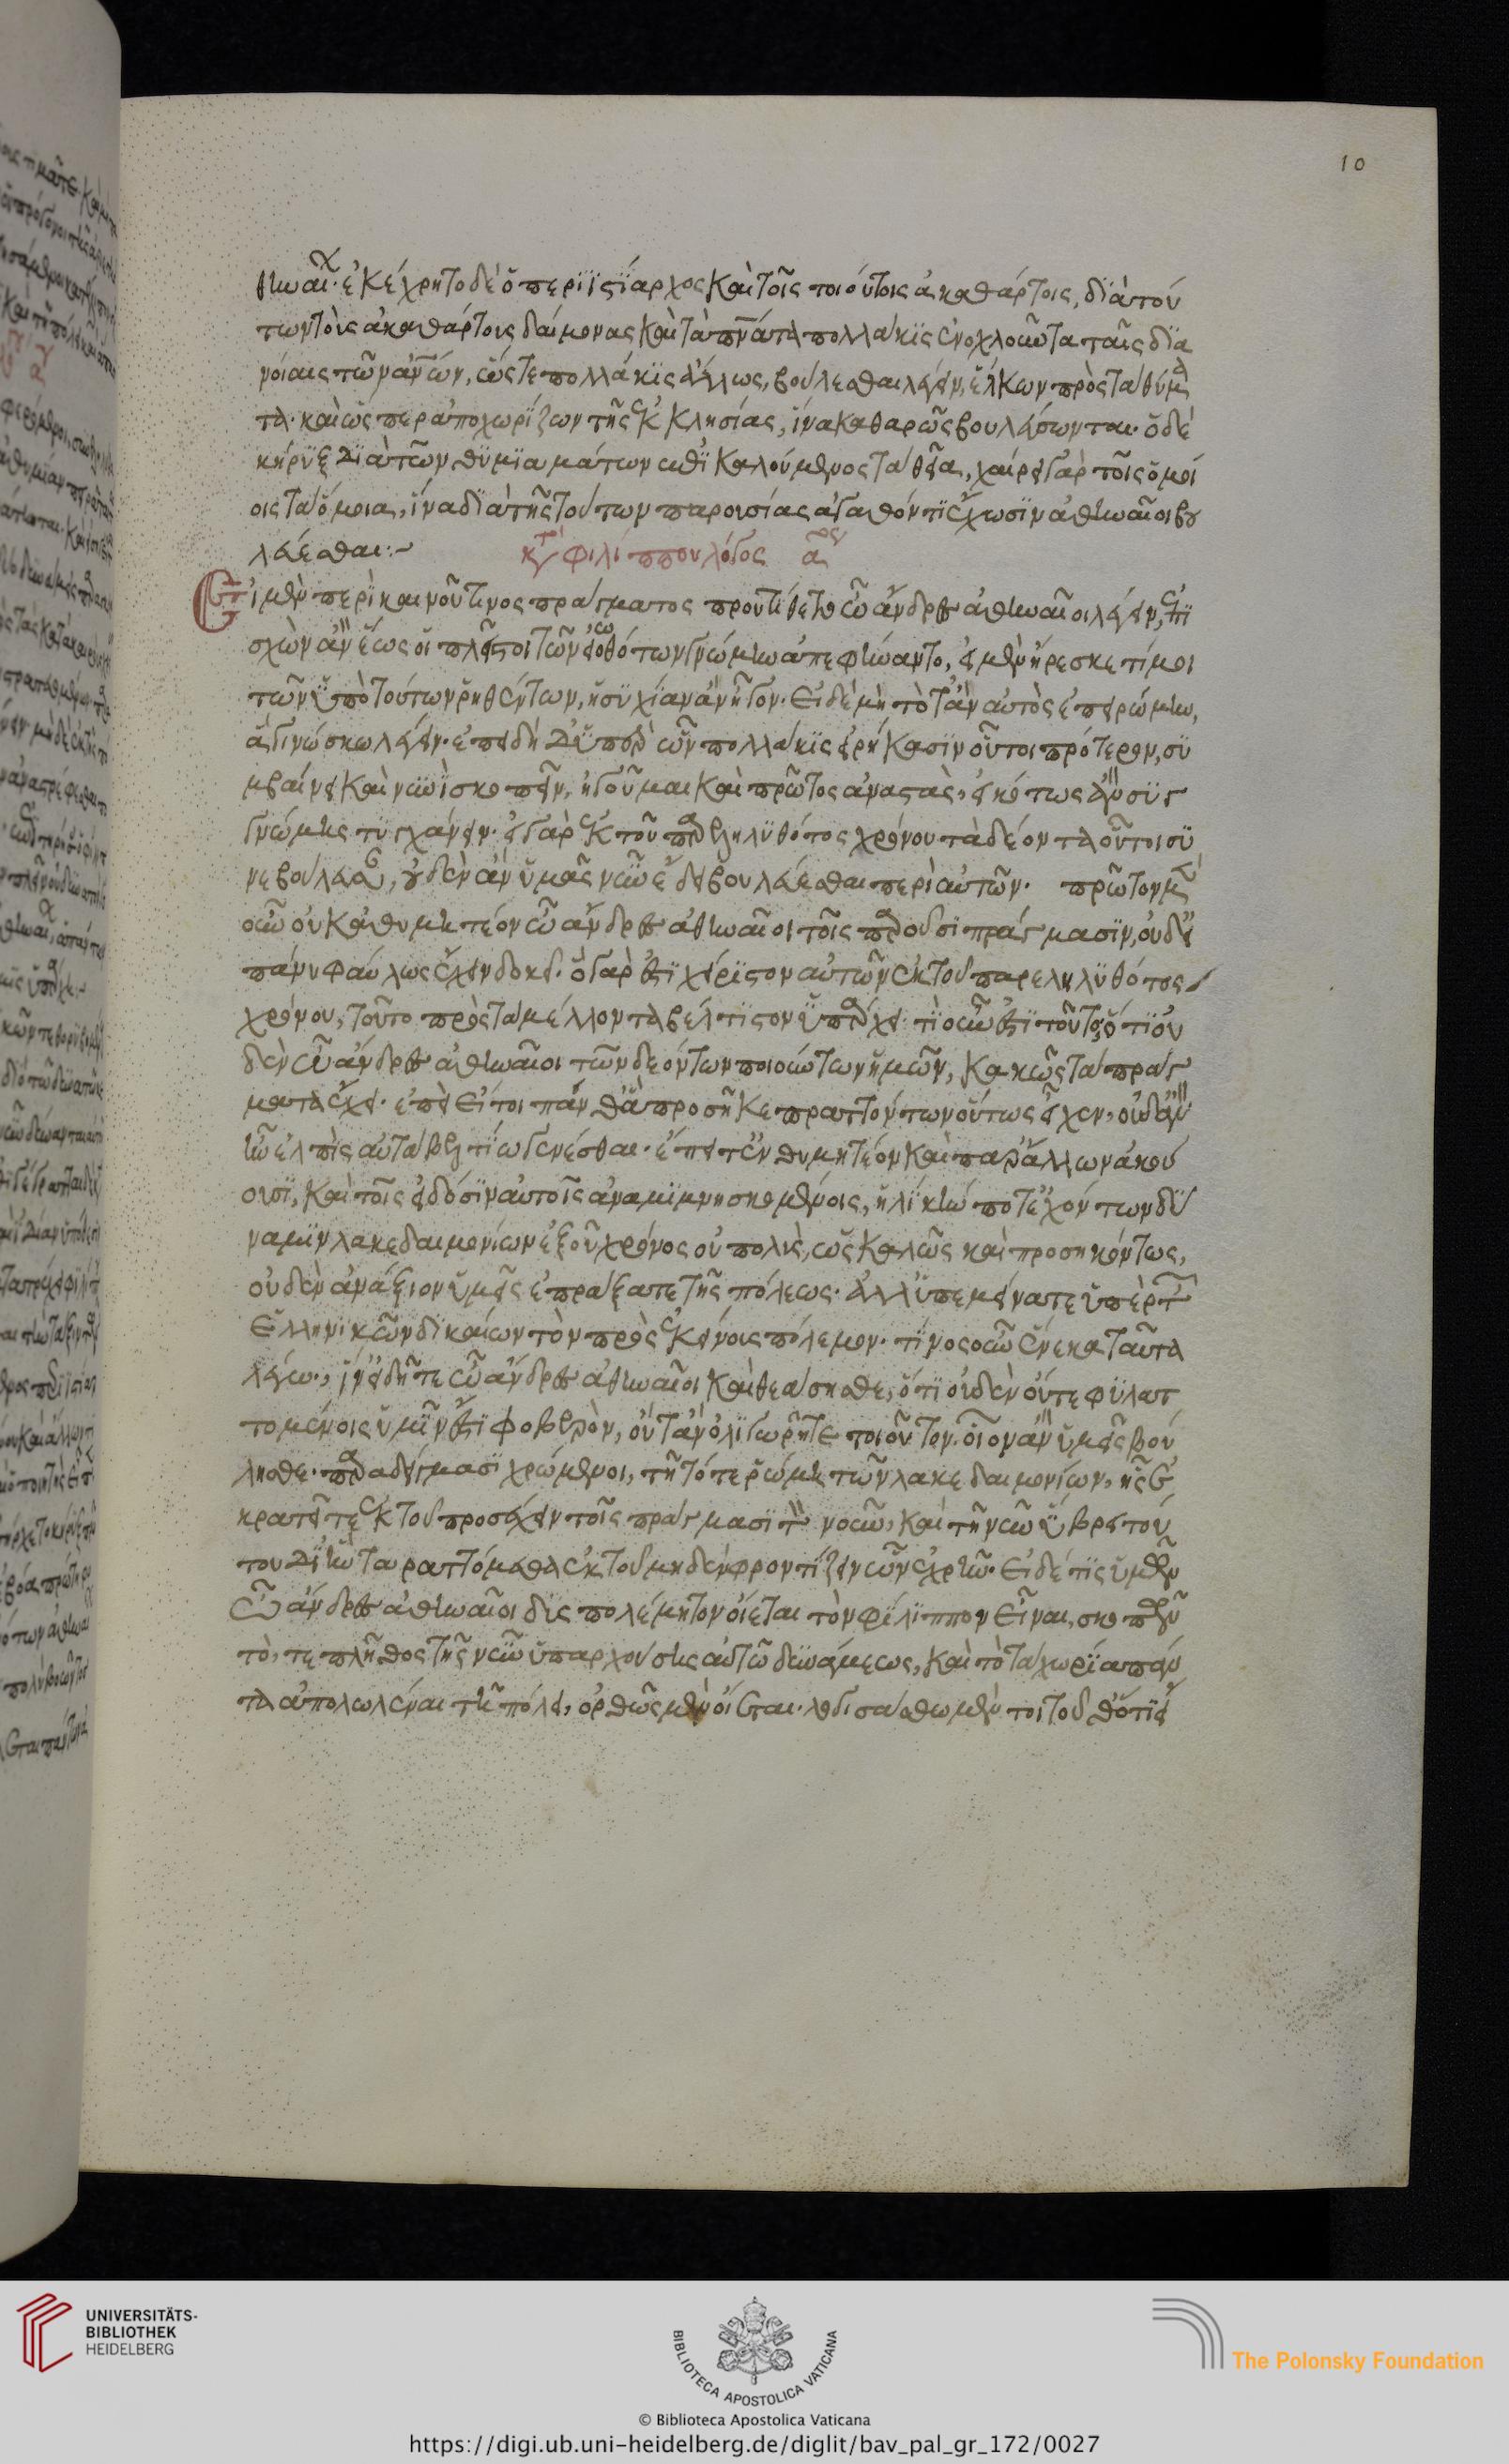 10
ἐκέχρητο δὲ ὁ περιϊστίαρχος καὶ τοῖς τοιούτοις ἀκαθάρτοις, διὰ τού
των τοὺς ἀκαθάρτους δαίμονας καὶ τὰ πν̅άτα πολλάκις ἐνοχλοῦντα ταῖς δια
νοίαις τῶν ἀν̅ων, ὥστε πολλάκις ἄλλως βούλεσθαι λέγειν, ἕλκων πρὸς τὰ θύμα
τα. καὶ ὥσπερ ἀποχωρίζων τῆς ἐκκλησίας, ἵνα καθαρῶς βουλεύσωνται. ὁ δὲ
κήρυξ διὰ τῶν θυμιαμάτων καλούμενος τὰ θεῖα, χαίρει γὰρ τοῖς ὁμοί
οις τὰ ὅμοια, ἵνα διὰ τῆς τούτων παρουσίας ἀγαθόν τι ἔχωσιν ἀθηναῖοι βου
λεύεσθαι:~ κτ̀ φιλίππου λόγος αος
Εἰ μὲν περὶ καινοῦ τινος πράγματος προυτίθετο ὦ ἄνδρες ἀθηναῖοι λέγειν, ἐπι
σχὼν ἂν ἕως οἱ πλεῖστοι τῶν εἰωθότων γνώμην ἀπεφήναντο, εἰ μὲν ἤρεσκέ τί μοι
τῶν ὑπὸ τούτων ῥηθέντων, ἡσυχίαν ἂν ἦγον. εἰ δὲ μὴ τότ' ἂν αὐτὸς ἐπειρώμην,
ἃ γινώσκω λέγειν. ἐπειδὴ δ' ὑπὲρ ὧν πολλάκις εἰρήκασιν οὗτοι πρότερον, συ
μβαίνει καὶ νυνὶ σκοπεῖν, ἡγοῦμαι καὶ πρῶτος ἀναστὰς, εἰκότως ἂν συγ
γνώμης τυγχάνειν. εἰ γὰρ ἐκ τοῦ παρεληλυθότος χρόνου τὰ δέοντα οὗτοι συ
νεβούλευσαν, οὐδὲν ἂν ὑμᾶς νῦν ἔδει βουλεύεσθαι περὶ αὐτῶν. πρῶτον μὲν
οὖν οὐκ ἀθυμητέον ὦ ἄνδρες ἀθηναῖοι τοῖς παροῦσι πράγμασιν, οὐδ' εἰ
πάνυ φαύλως ἔχειν δοκεῖ. ὃ γάρ ἐστι χείριστον αὐτῶν ἐκ τοῦ παρεληλυθότος
χρόνου, τοῦτο πρὸς τὰ μέλλοντα βέλτιστον ὑπάρχει. τί οὖν ἐστι τοῦτο; ὅτι οὐ
δὲν ὦ ἄνδρες ἀθηναῖοι τῶν δεόντων ποιούντων ἡμῶν, κακῶς τὰ πράγ
ματα ἔχει. ἐπεὶ εἴ τοι πάνθ' ἃ προσῆκε πραττόντων οὕτως εἶχεν, οὐδ' ἂν
ἦν ἐλπὶς αὐτὰ βελτίω γενέσθαι. ἔπειτ' ἐνθυμητέον καὶ παρ' ἄλλων ἀκού
ουσι, καὶ τοῖς εἰδόσιν αὐτοῖς ἀναμιμνησκομένοις, ἡλίκην ποτ' ἐχόντων δύ
ναμιν λακεδαιμονίων ἐξ οὗ χρόνος οὐ πολὺς, ὡς καλῶς καὶ προσηκόντως,
οὐδὲν ἀνάξιον ὑμεῖς ἐπράξατε τῆς πόλεως. ἀλλ' ὑπεμείνατε ὑπὲρ τ̅
ἑλληνικῶν δικαίων τὸν πρὸς ἐκείνους πόλεμον. τίνος οὖν ἕνεκα ταῦτα
λέγω., ἵν' εἰδῆτε ὦ ἄνδρες ἀθηναῖοι καὶ θεάσησθε, ὅτι οὐδὲν οὔτε φυλατ
τομένοις ὑμῖν ἐστι φοβερὸν, οὔτ' ἂν ὀλιγωρῆτε τοιοῦτον. οἷον ἂν ὑμεῖς βού
λησθε. παραδείγμασι χρώμενοι, τῇ τότε ῥώμῃ τῶν λακεδαιμονίων, ἧς ἐ
κρατεῖτε ἐκ τοῦ προσέχειν τοῖς πράγμασι τ̀ νοῦν, καὶ τῇ νῦν ὕβρει τού
του δι' ἣν ταραττόμεθα ἐκ τοῦ μηδὲν φροντίζειν ὧν ἐχρῆν. εἰ δέ τις ὑμῶν
ὦ ἄνδρες ἀθηναῖοι δυσπολέμητον οἴεται τὸν φίλιππον εἶναι, σκοπῶν
τό, τε πλῆθος τῆς νῦν ὑπαρχούσης αὐτῷ δυνάμεως, καὶ τὸ τὰ χωρία πάν
τα ἀπολωλέναι τῇ πόλει, ὀρθῶς μὲν οἴεται. λογισάσθω μέν τοι τοῦθ' ὅτι εἴ
UNIVERSITÄTS-
BIBLIOTHEK
HEIDELBERG
BIBLIOTECA APOSTOLICA VATICANA
The Polonsky Foundation
© Biblioteca Apostolica Vaticana
https://digi.ub.uni-heidelberg.de/diglit/bav_pal_gr_172/0027